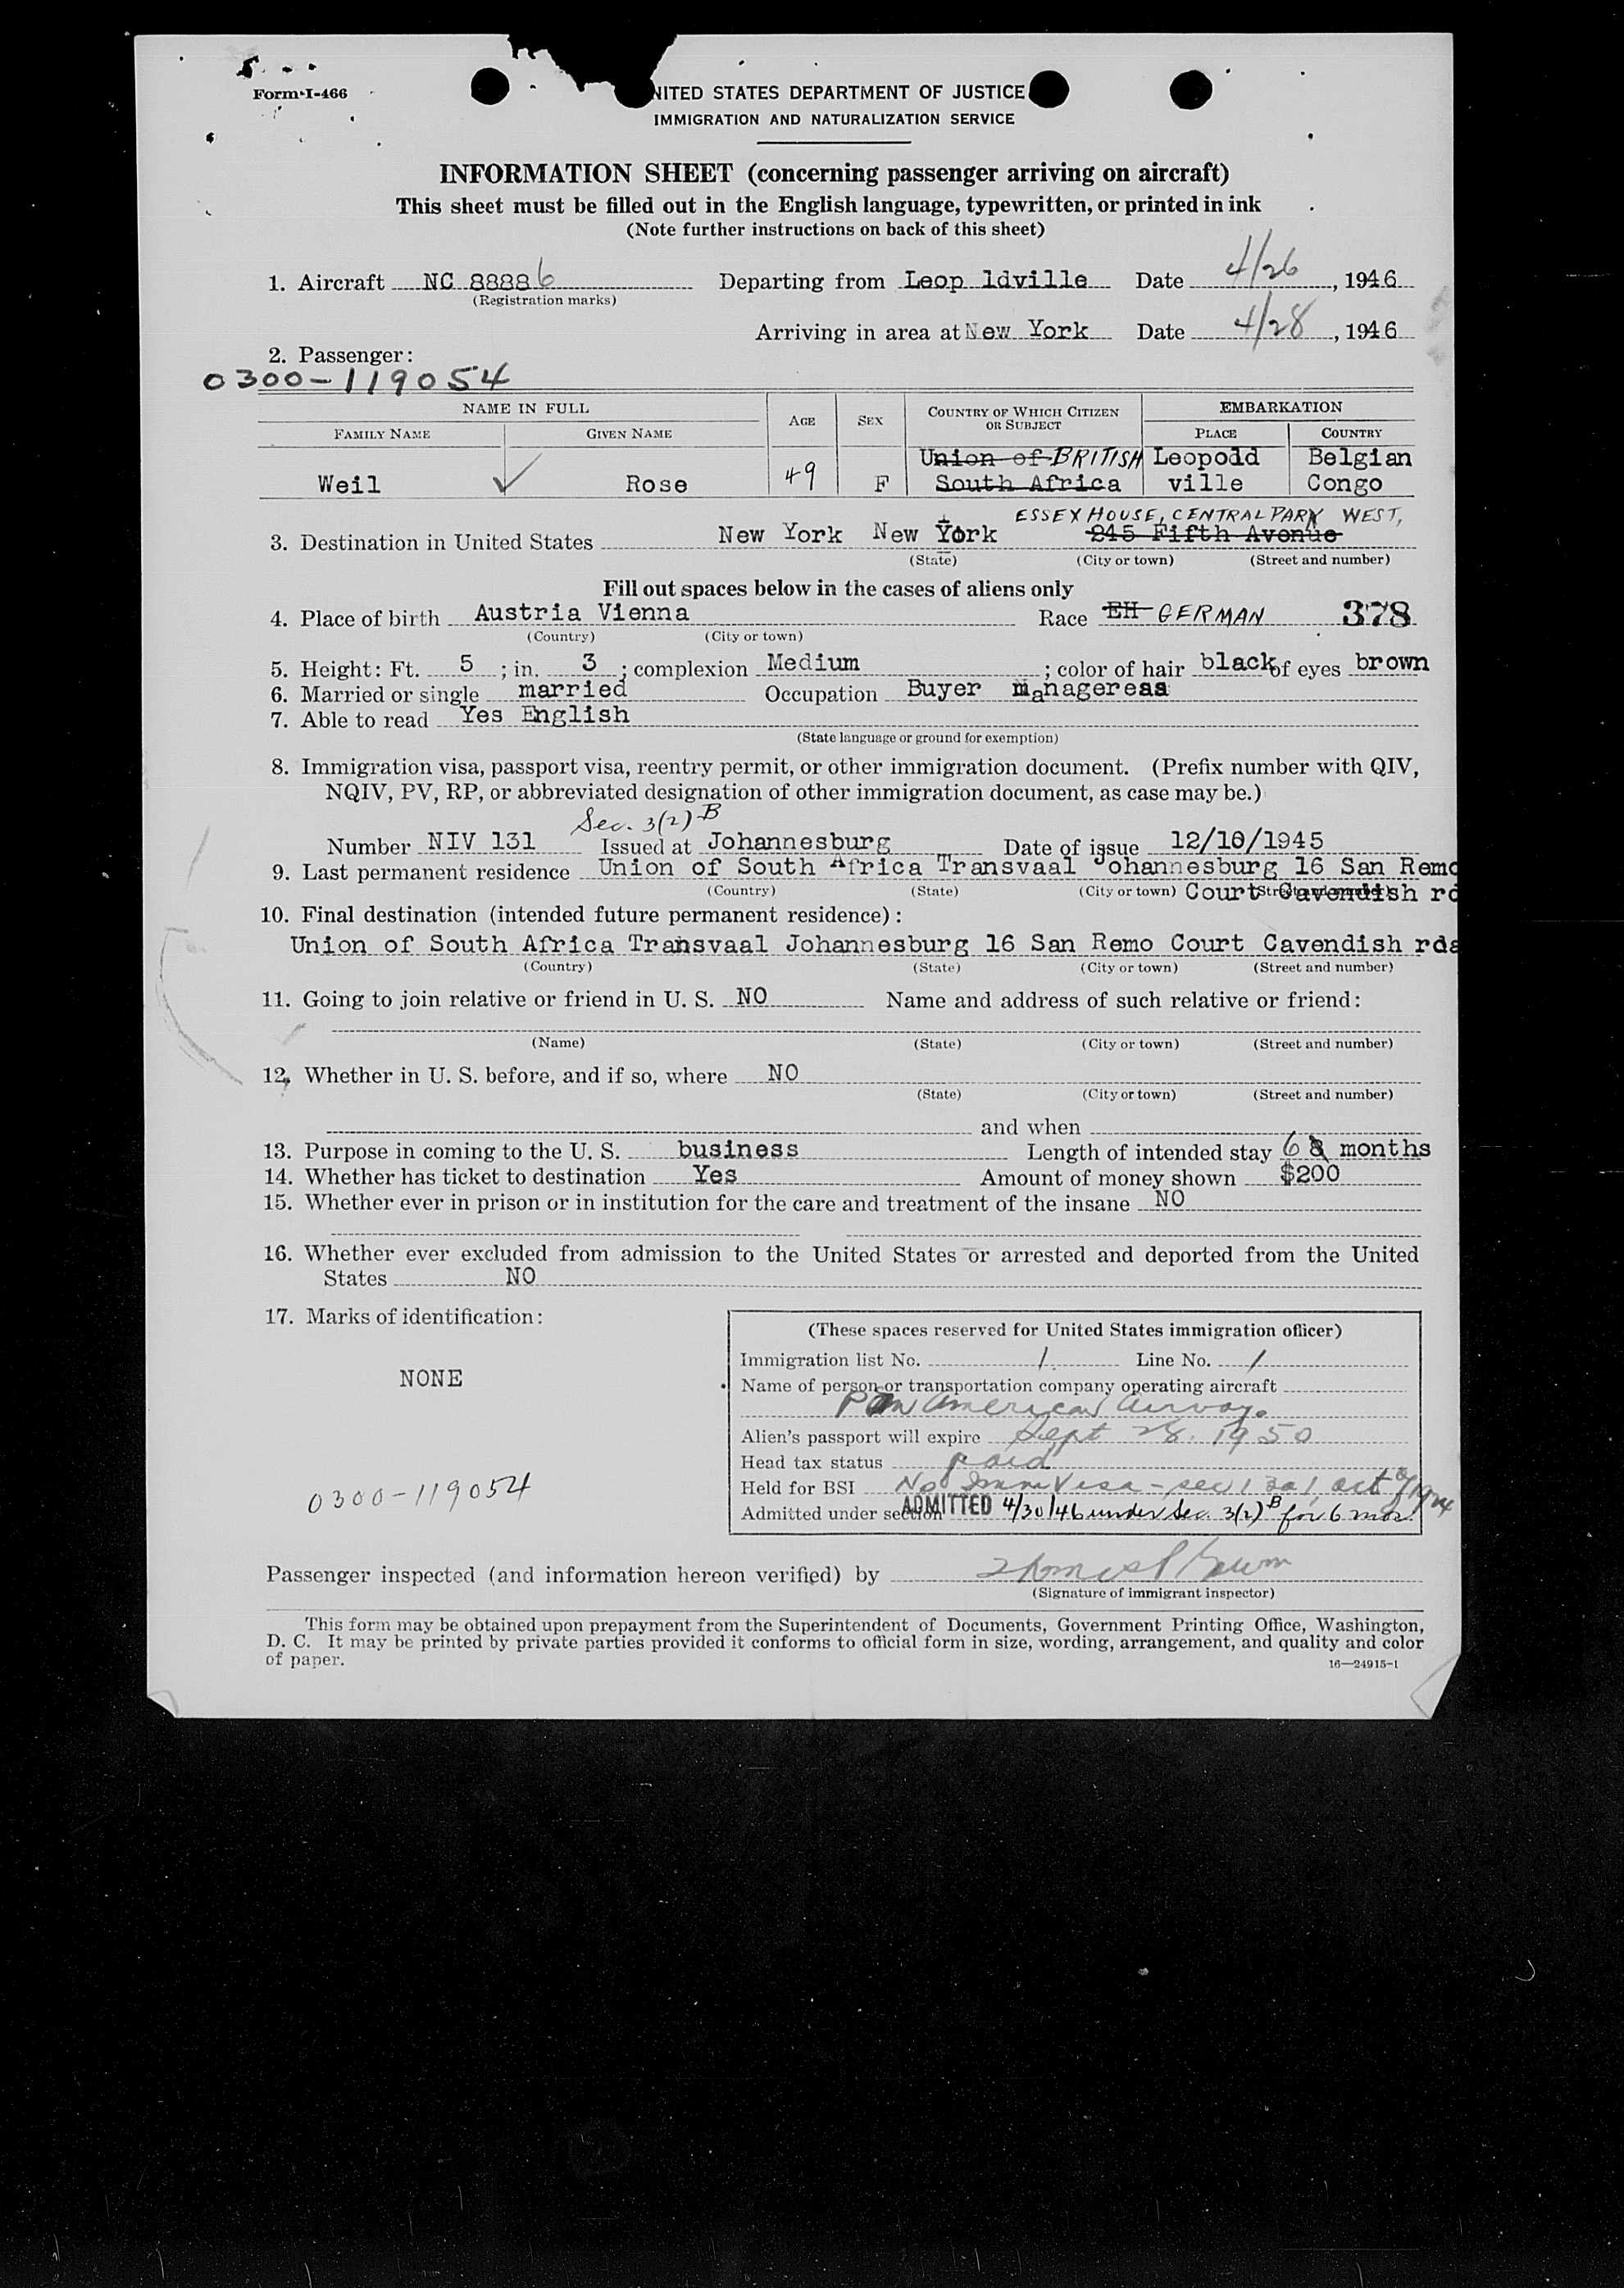 Form I-466
NITED STATES DEPARTMENT OF JUSTICE
IMMIGRATION AND NATURALIZATION SERVICE
INFORMATION SHEET (concerning passenger arriving on aircraft)
This sheet must be filled out in the English language, typewritten, or printed in ink
(Note further instructions on back of this sheet)
1. Aircraft NC 88886 Departing from Leop ldville Date 4/26, 1946
(Registration marks)
Arriving in area at New York Date 4/28, 1946
2. Passenger:
0300-119054
NAME IN FULL AGE SEX COUNTRY OF WHICH CITIZEN OR SUBJECT EMBARKATION
FAMILY NAME GIVEN NAME PLACE COUNTRY
Union of BRITISH Leopold Belgian
Weil ✓ Rose 49 F South Africa ville Congo
ESSEX HOUSE, CENTRAL PARK WEST,
3. Destination in United States New York New York 245 Fifth Avenue
(State) (City or town) (Street and number)
Fill out spaces below in the cases of aliens only
4. Place of birth Austria Vienna Race EH GERMAN 378
(Country) (City or town)
5. Height: Ft. 5; in. 3; complexion Medium; color of hair black of eyes brown
6. Married or single married Occupation Buyer managereas
7. Able to read Yes English
(State language or ground for exemption)
8. Immigration visa, passport visa, reentry permit, or other immigration document. (Prefix number with QIV,
NQIV, PV, RP, or abbreviated designation of other immigration document, as case may be.)
Sec. 3(2) B
Number NIV 131 Issued at Johannesburg Date of issue 12/10/1945
9. Last permanent residence Union of South Africa Transvaal Johannesburg 16 San Remo
(Country) (State) (City or town) Court Cavendish rd
10. Final destination (intended future permanent residence):
Union of South Africa Transvaal Johannesburg 16 San Remo Court Cavendish rda
(Country) (State) (City or town) (Street and number)
11. Going to join relative or friend in U. S. NO Name and address of such relative or friend:
(Name) (State) (City or town) (Street and number)
12. Whether in U. S. before, and if so, where NO
(State) (City or town) (Street and number)
and when
13. Purpose in coming to the U. S. business Length of intended stay 6 months
14. Whether has ticket to destination Yes Amount of money shown $200
15. Whether ever in prison or in institution for the care and treatment of the insane NO
16. Whether ever excluded from admission to the United States or arrested and deported from the United
States NO
17. Marks of identification:
NONE
0300-119054
(These spaces reserved for United States immigration officer)
Immigration list No. 1 Line No. 1
Name of person or transportation company operating aircraft
Pan American Airways
Alien's passport will expire Sept 28. 1950
Head tax status paid
Held for BSI No Imm Visa - sec 13a1 act of 1924
Admitted under section ADMITTED 4/30/46 under Sec. 3(2) B for 6 mos.
Passenger inspected (and information hereon verified) by
(Signature of immigrant inspector)
This form may be obtained upon prepayment from the Superintendent of Documents, Government Printing Office, Washington,
D. C. It may be printed by private parties provided it conforms to official form in size, wording, arrangement, and quality and color
of paper.
16—24915-1